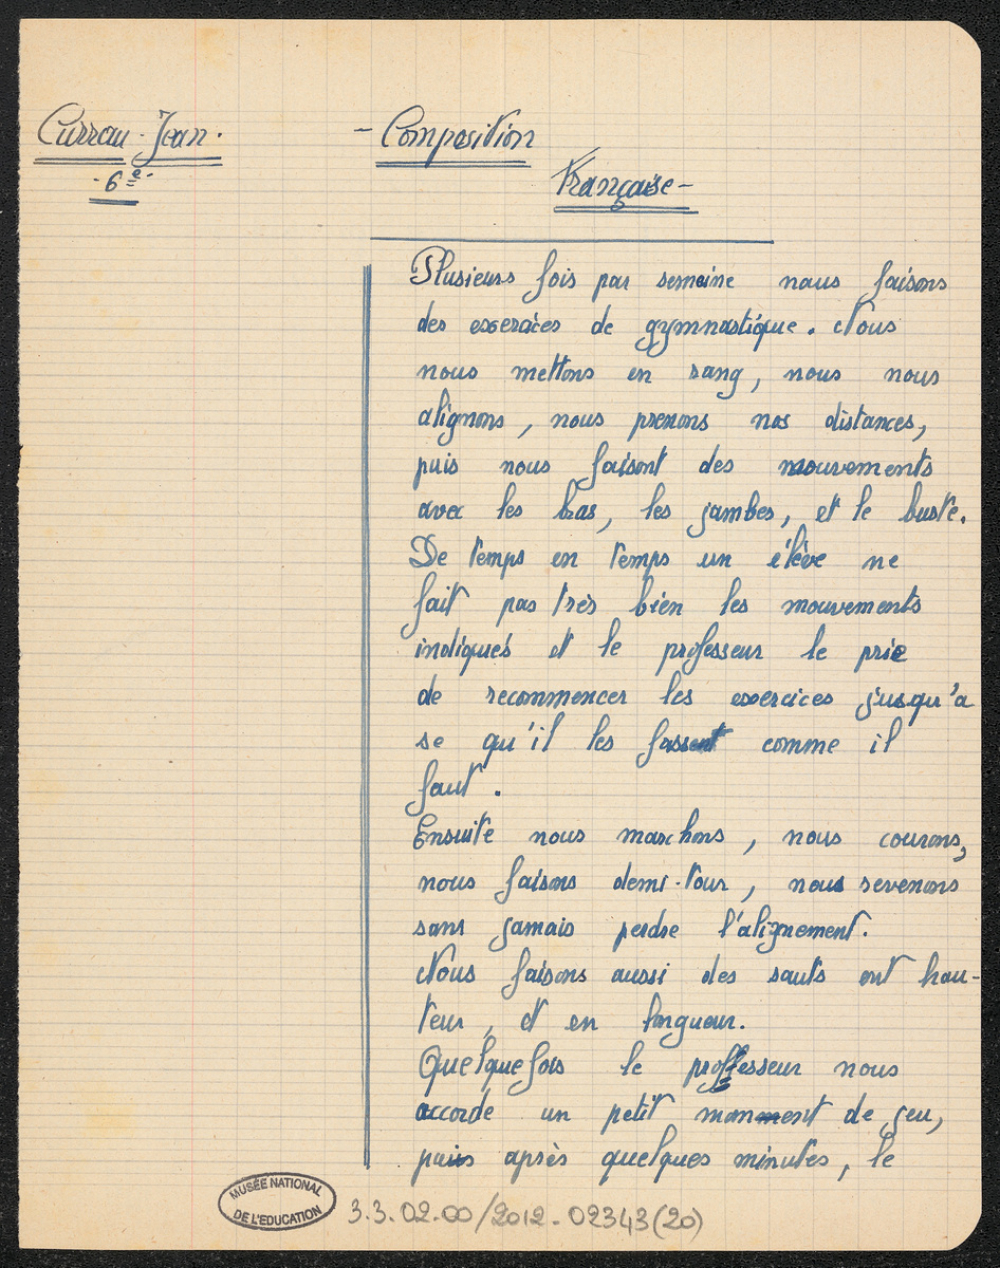 Currau - Jean.
- 6e -
- Composition
Française -
Plusieurs fois par semaine nous faisons
des exercices de gymnastique. Nous
nous mettons en rang, nous nous
alignons, nous prenons nos distances,
puis nous faisont des mouvements
avec les bras, les jambes, et le buste.
De temps en temps un élève ne
fait pas très bien les mouvements
indiqués et le professeur le prie
de recommencer les exercices jusqu'a
se qu'il les fassent comme il
faut.
Ensuite nous marchons, nous courons,
nous faisons demi-tour, nous revenons
sans jamais perdre l'alignement.
Nous faisons aussi des sauts ent hau-
teur, et en longueur.
Quelquefois le professeur nous
accorde un petit moment de jeu,
puis après quelques minutes, le
MUSÉE NATIONAL
DE L'EDUCATION
3.3.02.00/2012-02343(20)